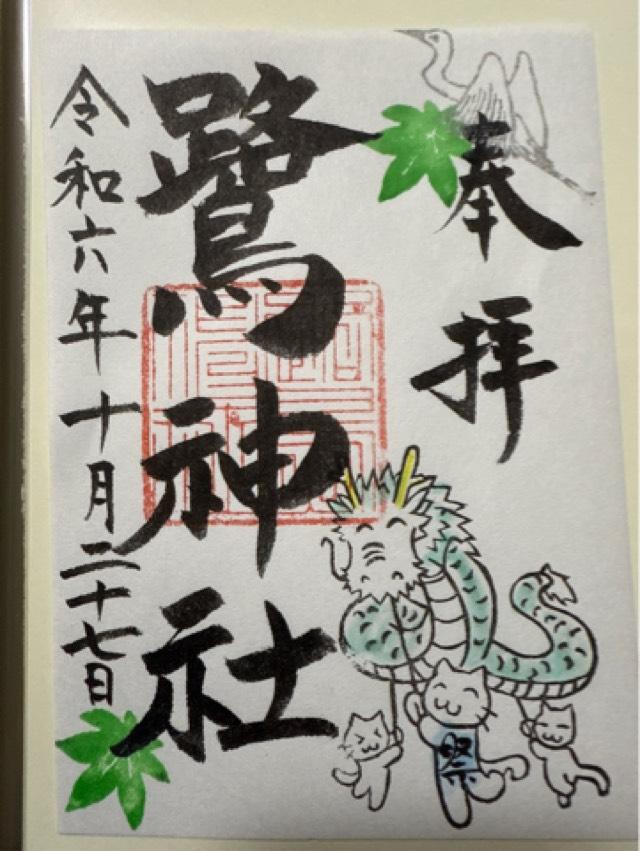 奉拝
鷺神社
令和六年十月二十七日
祭